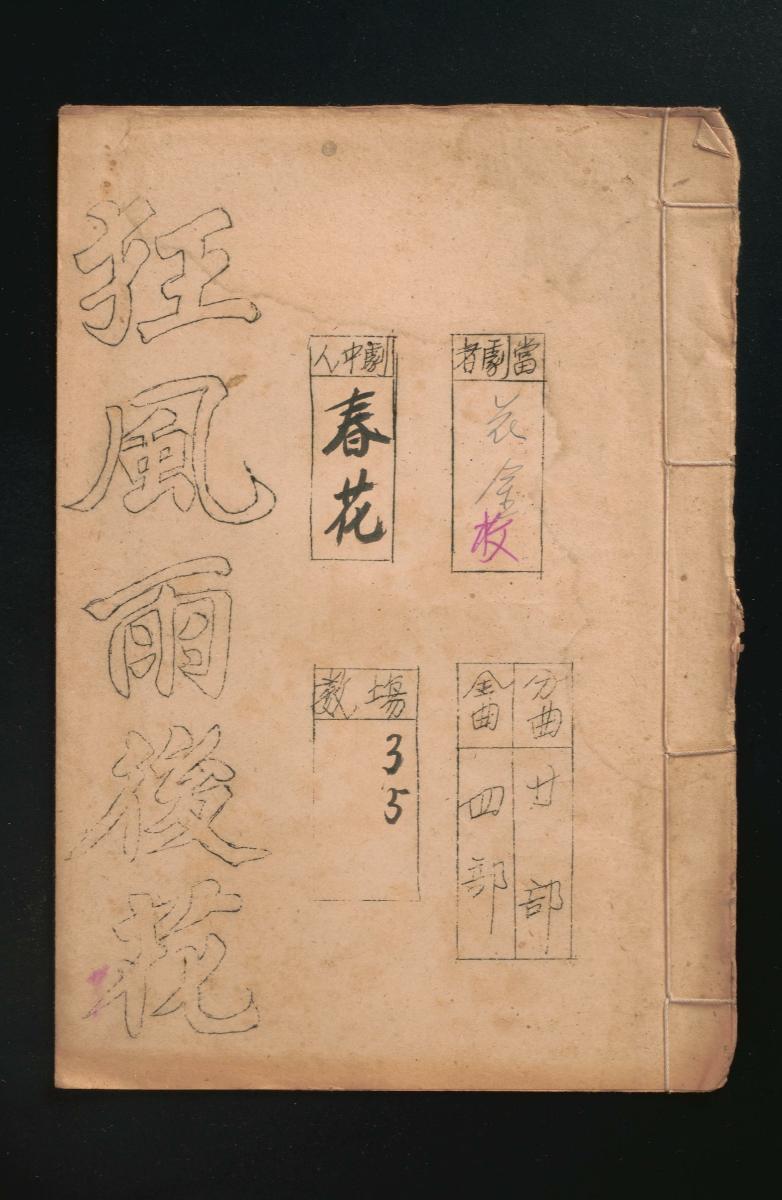 當劇者
花金枝
劇中人
春花
分曲
廿部
全曲
四部
場數
35
狂風雨後花